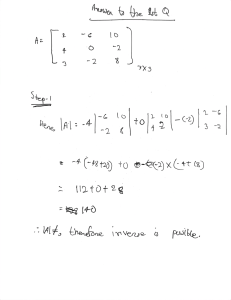 Answer to the Q
A = [ 2 -6 10
4 0 -2
3 -2 8 ] 3×3
Step:1
Here, |A| = -4 |-6 10 -2 8| + 0 |2 10 | - (-2) |2 -6 3 -2|
= -4 (-48+20) + 0 -(-2) × (-4+18)
= 112 + 0 + 28
= 140
∴ |A|≠, therefore inverse is